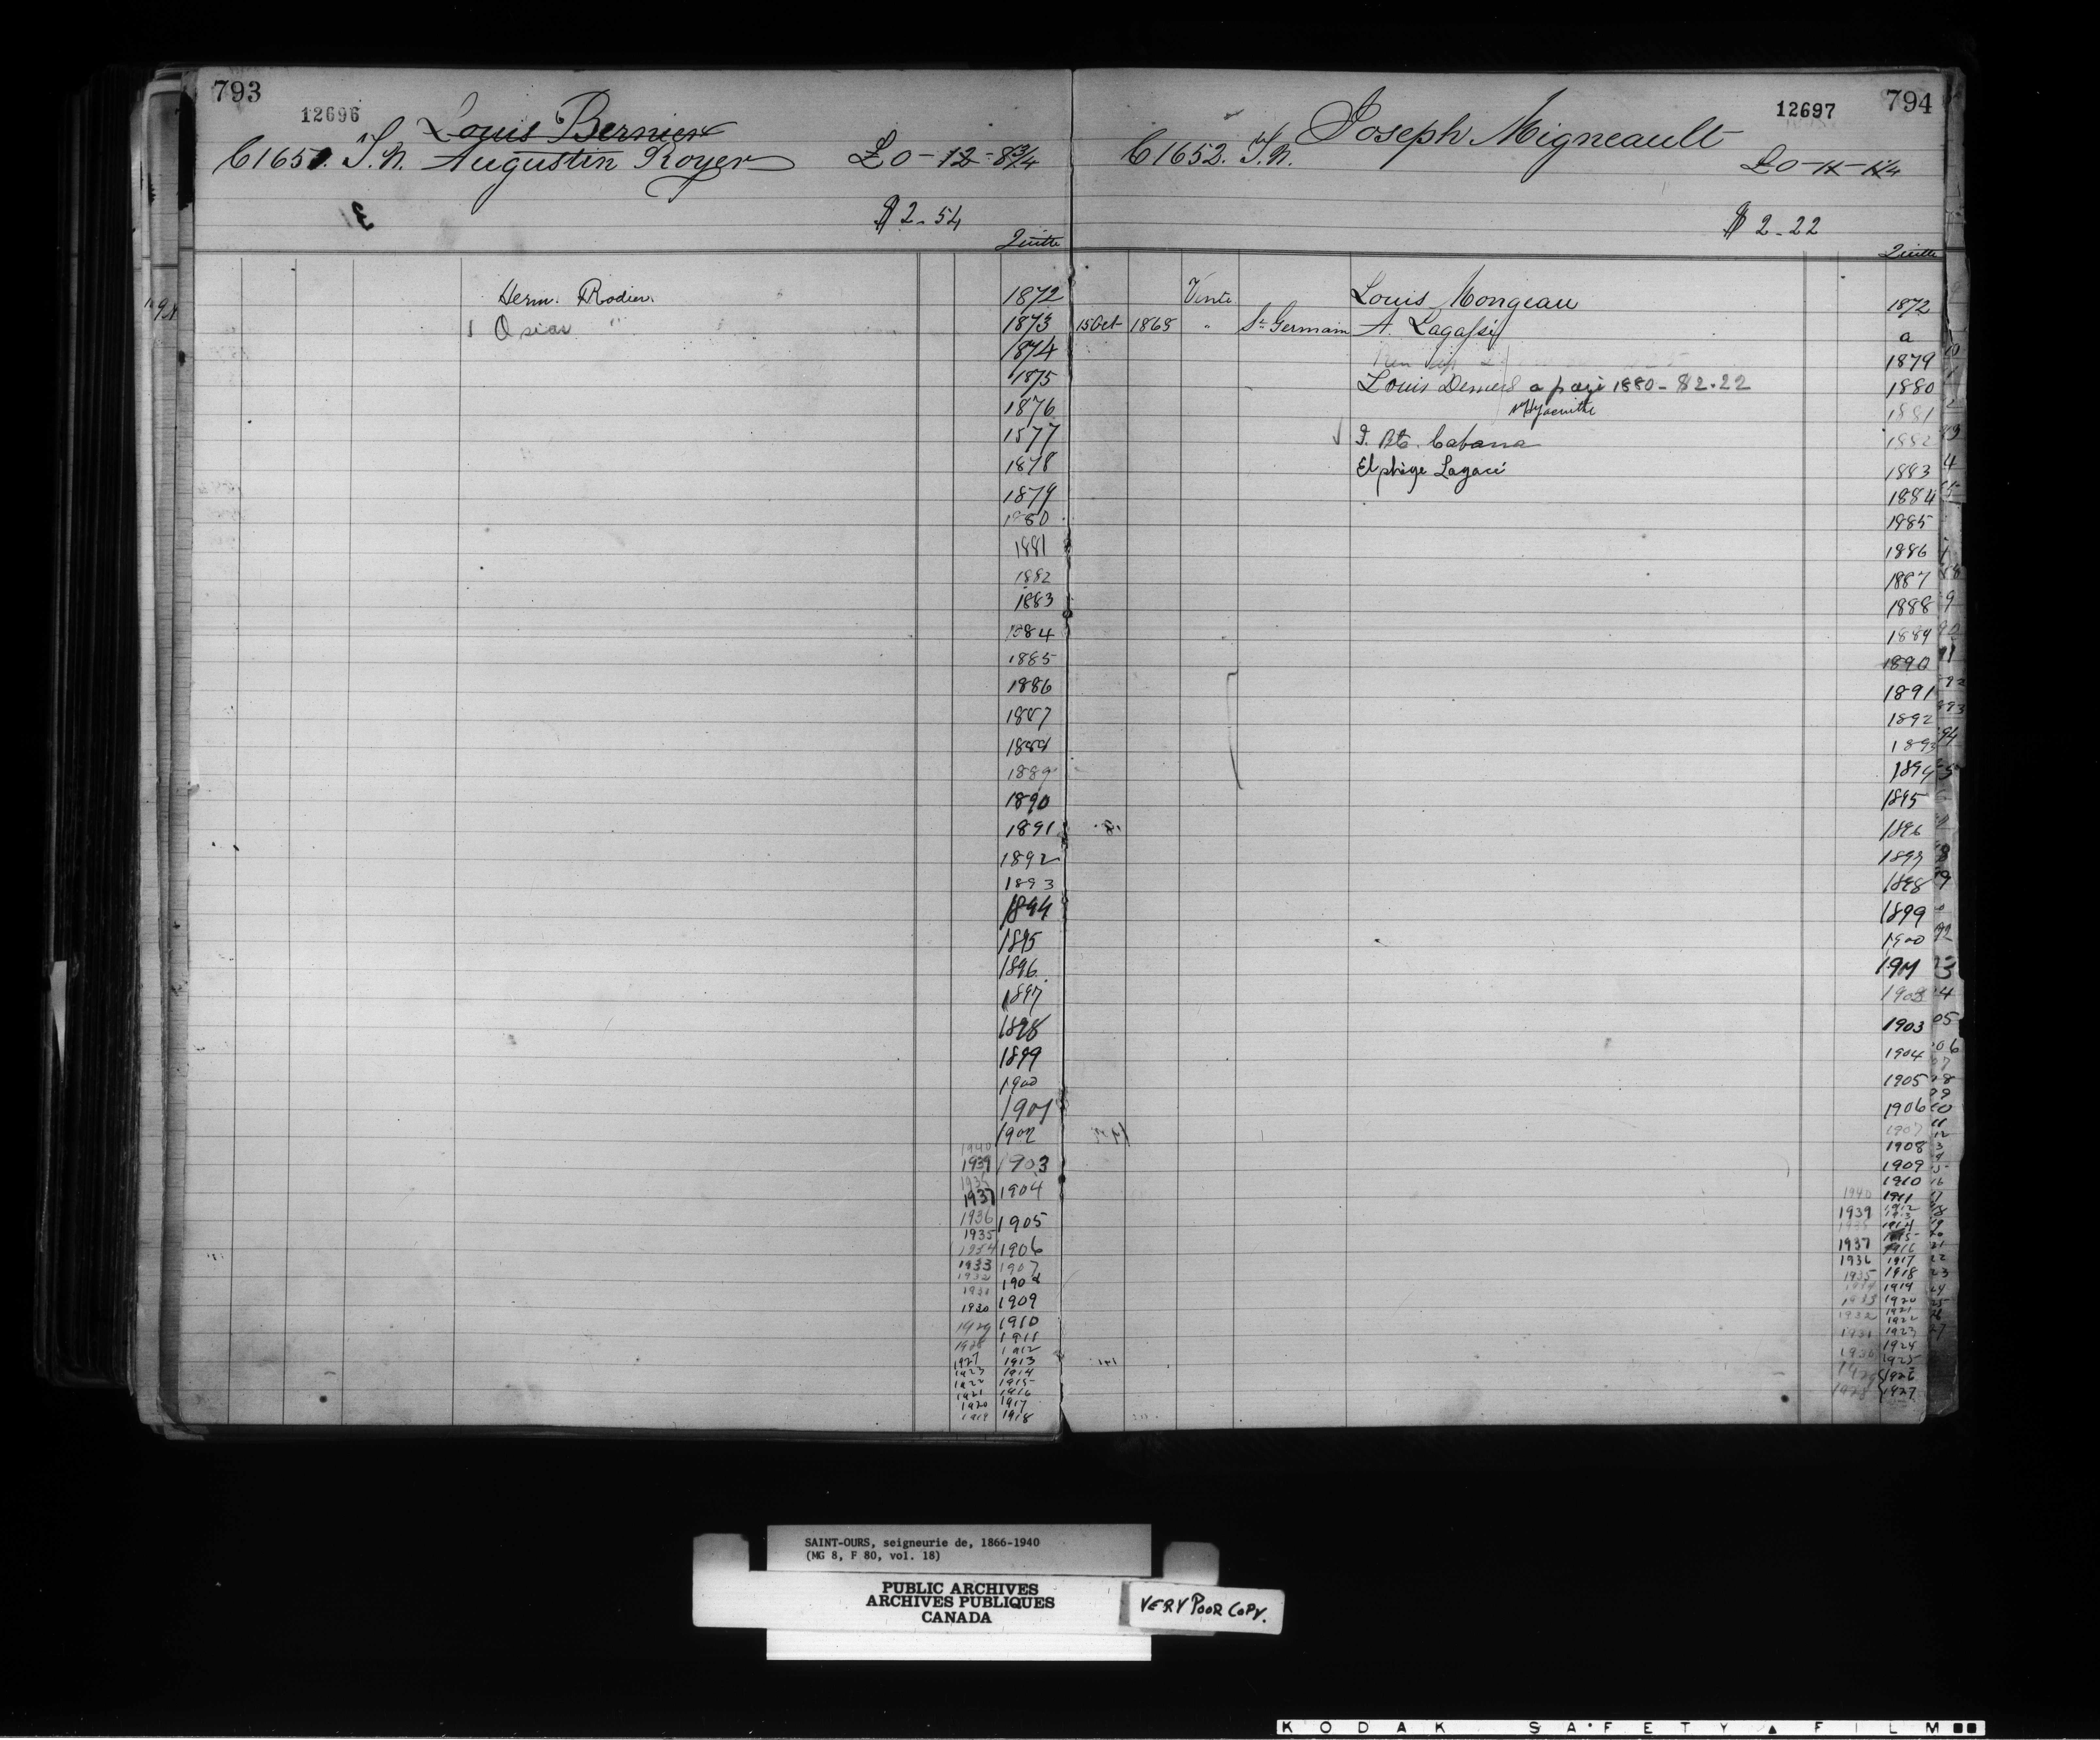 793
12696
Louis Bernier
C1651. T.N. Augustin Royer £0-12-8¾
$2-54
Quitte
Herm. Rodier. 1872
Osias " 1873
1874
1875
1876
1877
1878
1879
1880
1881
1882
1883
1884
1885
1886
1887
1888
1889
1890
1891
1892
1893
1894
1895
1896
1897
1898
1899
1900
1901
1902
1940
1939 1903
1937 1904
1936 1905
1935
1934 1906
1933 1907
1932 1908
1931
1930 1909
1929 1910
1928 1911
1912
1927 1913
1923 1914
1922 1915
1921 1916
1920 1917
1919 1918
12697 794
Joseph Migneault
C1652. T.N. £0-11-1¼
$2-22
Quitte
Vente Louis Mongeau 1872
15 Oct 1865 " St Germain A. Lagassé a
1879
Louis Demers a payé 1880 - $2.22 1880
St Hyacinthe 1881
J. Bte. Cabana 1882
Elphège Lagacé 1883
1884
1885
1886
1887
1888
1889
1890
1891
1892
1893
1894
1895
1896
1897
1898
1899
1900
1901
1902
1903
1904
1905
1906
1907
1908
1909
1910
1940 1911
1939 1912
1913
1914
1915
1937 1916
1936 1917
1935 1918
1934 1919
1933 1920
1932 1921
1922
1931 1923
1924
1930 1925
1929 1926
1928 1927
SAINT-OURS, seigneurie de, 1866-1940
(MG 8, F 80, vol. 18)
PUBLIC ARCHIVES
ARCHIVES PUBLIQUES
CANADA
VERY POOR COPY.
KODAK SAFETY FILM